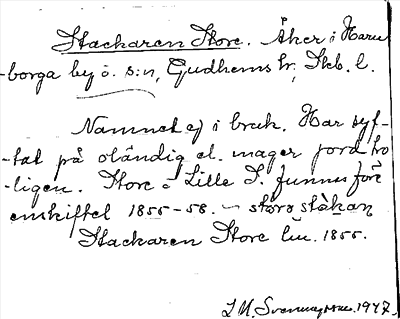 Stackaren Store. Åker i Haru
-borga by o. s:n, Gudhems hr, Skb. l.
Namnet ej i bruk. Har syf-
-tat på oländig el. mager jord tro
-ligen. Store o Lille S. funnos före
enskiftet 1855-58. ~ storo stàkan
Stackaren Store lm. 1855.
1947.